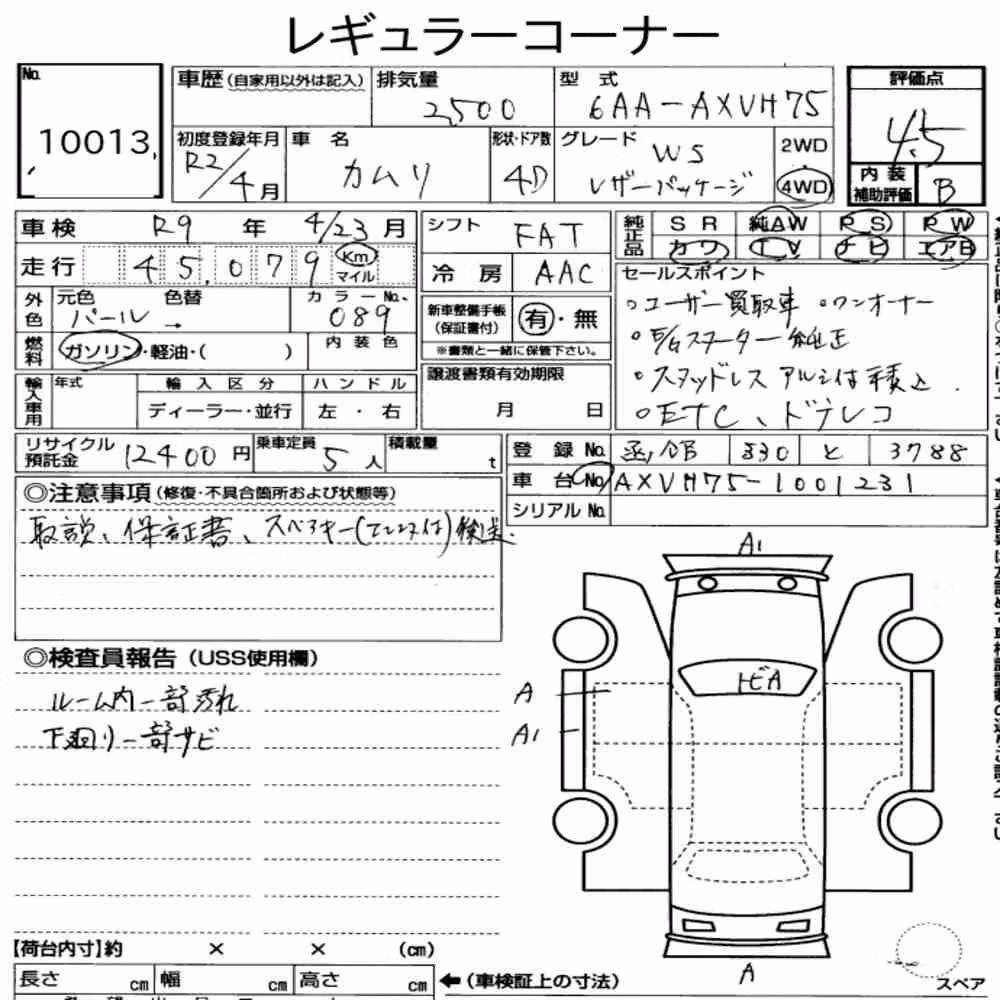 レギュラーコーナー
No. 10013
車歴 (自家用以外は記入) 排気量 2,500 型式 6AA-AXVH75
初度登録年月 R2/4月 車名 カムリ 形状・ドア数 4D グレード WS レザーパッケージ 2WD 4WD
評価点 4.5
内装補助評価 B
車検 R9年 4/23月
走行 45,079 Km マイル
シフト FAT
冷房 AAC
純正品 SR 純AW RS RW
カワ TV ナビ エアB
外色 元色 パール 色替 → カラーNo. 089
燃料 ガソリン・軽油・( ) 内装色
新車整備手帳(保証書付) 有・無
※書類と一緒に保管下さい。
セールスポイント
○ユーザー買取車 ○ワンオーナー
○E/Gスターター純正
○スタッドレス アルミ付積込
○ETC、ドラレコ
輸入車用 年式 輸入区分 ディーラー・並行 ハンドル 左・右
譲渡書類有効期限 月 日
リサイクル預託金 12400円 乗車定員 5人 積載量 t
登録No. 函館 330 と 3788
車台No. AXVH75-1001231
シリアルNo.
◎注意事項(修復・不具合箇所および状態等)
取説、保証書、スペアキー(   付)後送.
◎検査員報告(USS使用欄)
ルーム内一部汚れ
下廻り一部サビ
A1
トビA
A
A1
A
【荷台内寸】約 × × (cm)
長さ cm 幅 cm 高さ cm ←(車検証上の寸法)
スペア